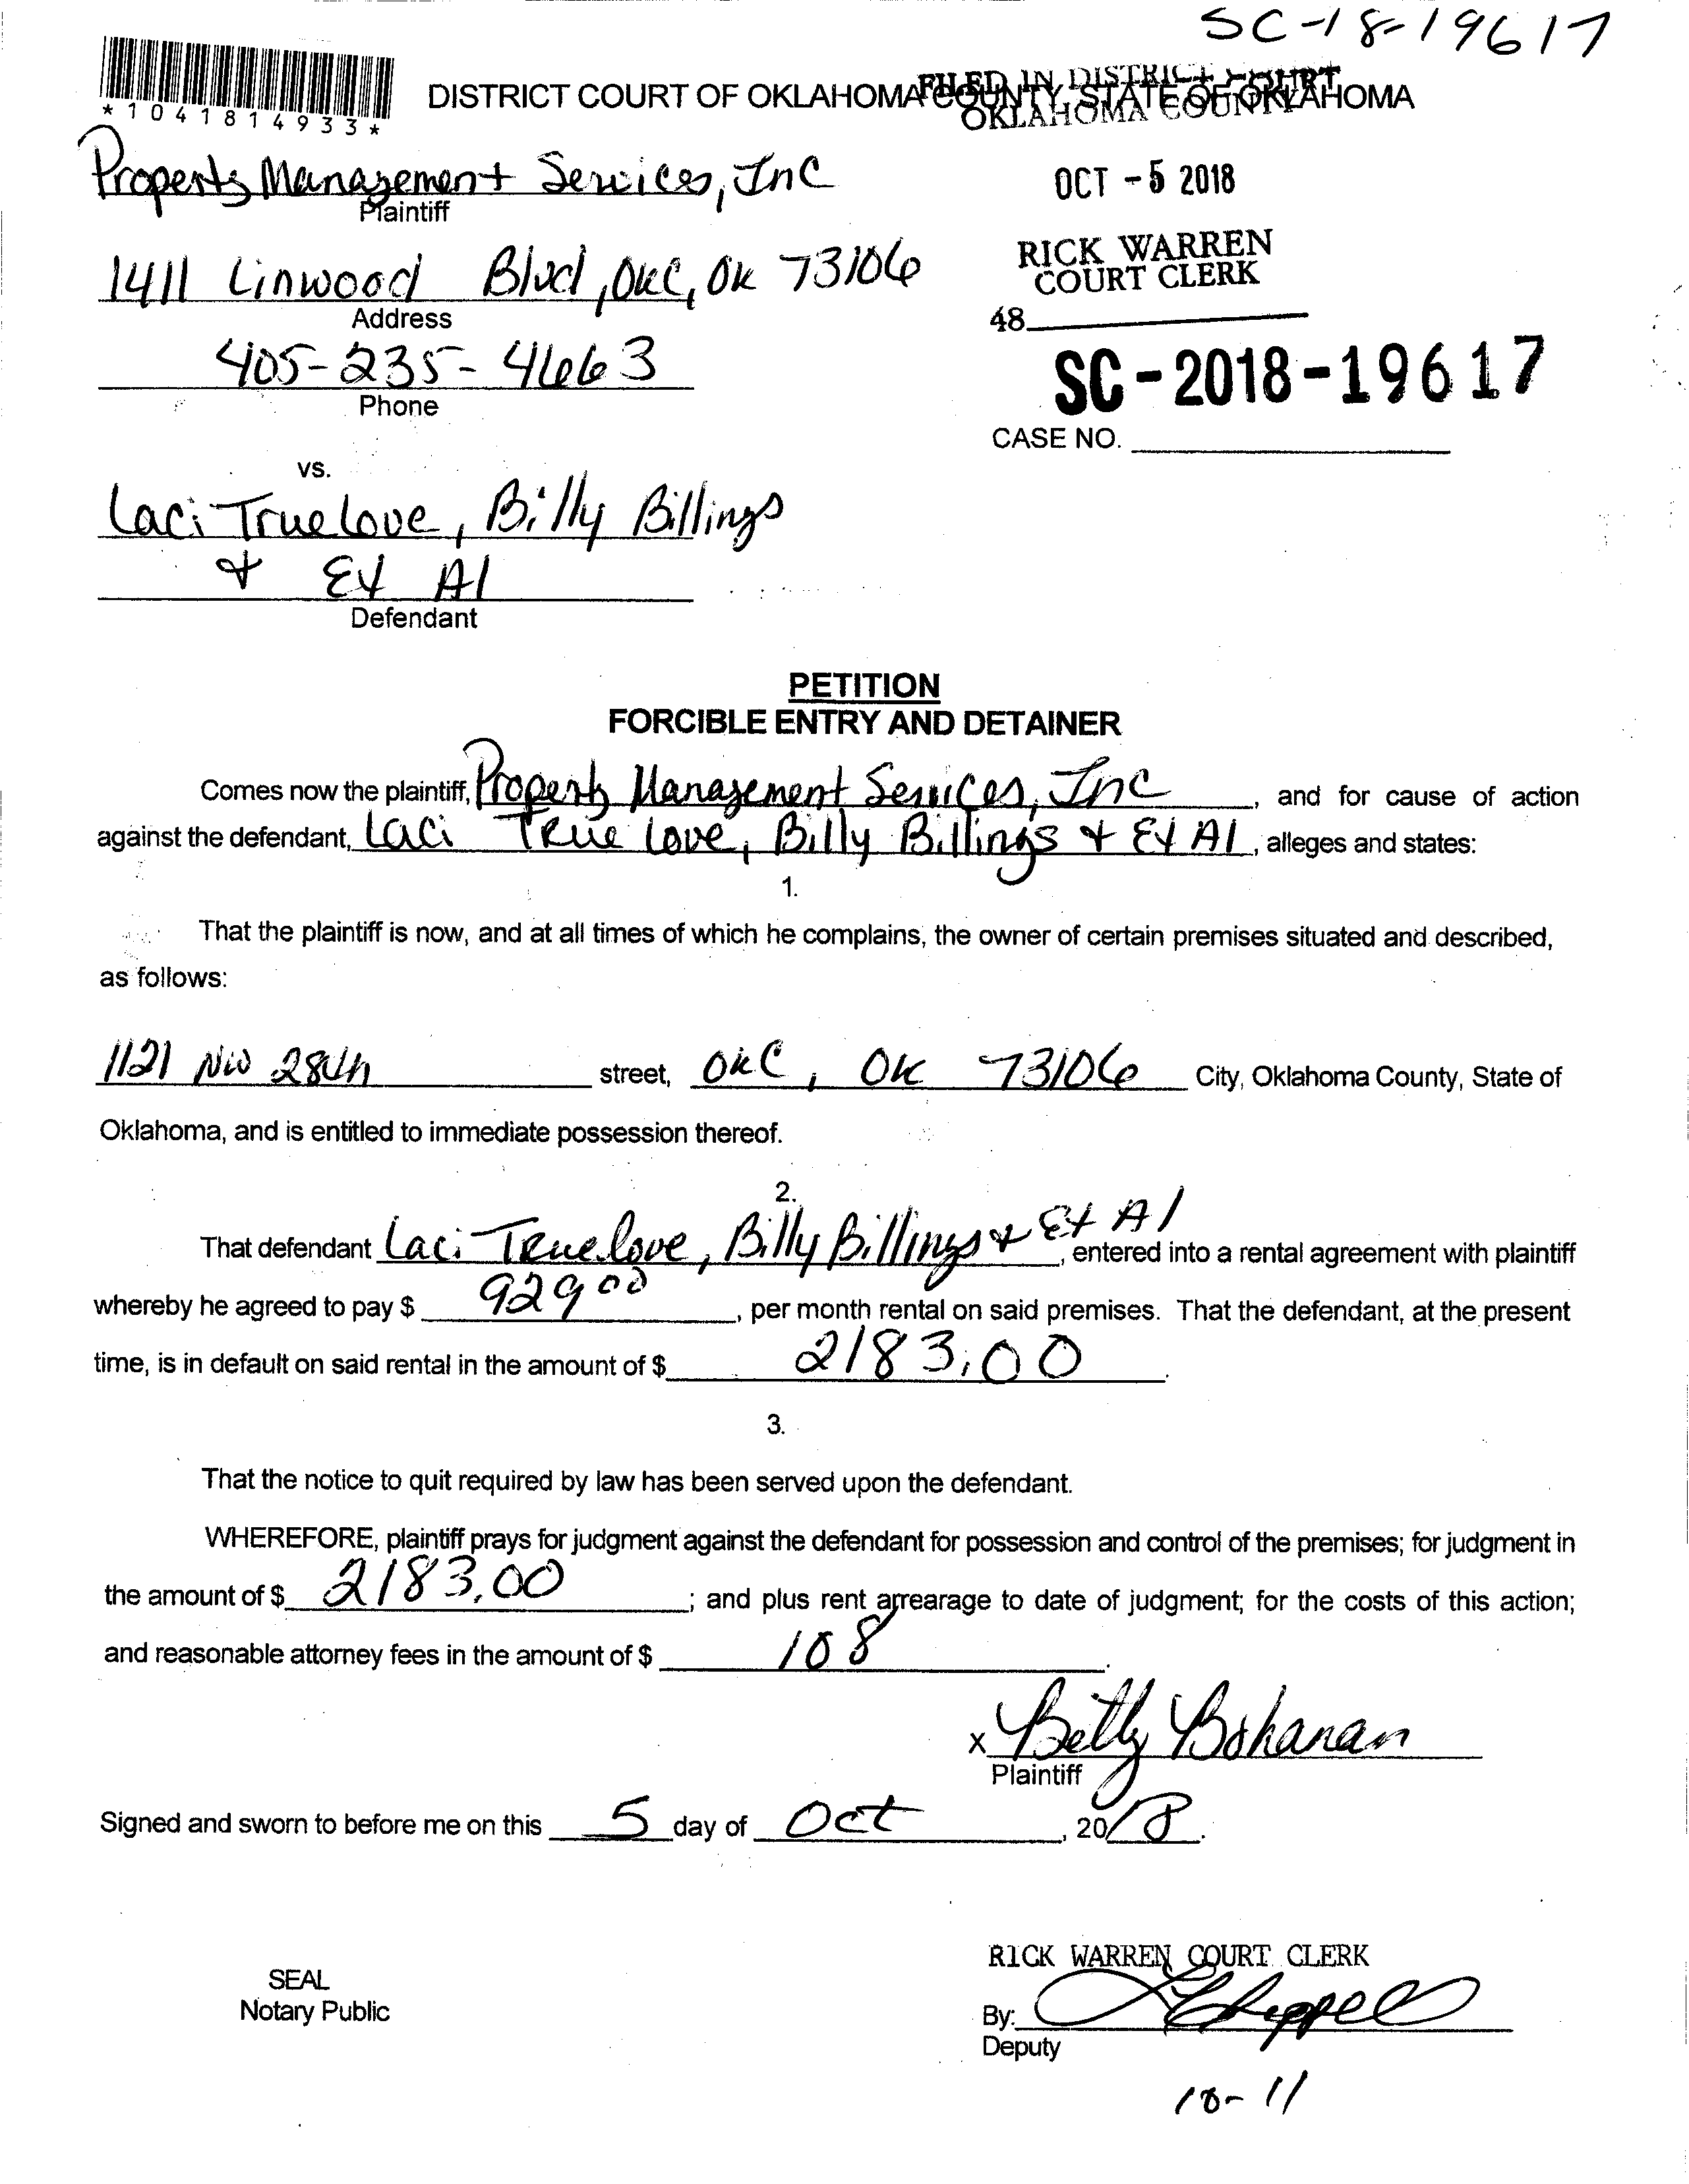 SC-18-19617
*1041814933*
DISTRICT COURT OF OKLAHOMA COUNTY, STATE OF OKLAHOMA
FILED IN DISTRICT COURT
OKLAHOMA COUNTY
Property Management Services, Inc
Plaintiff
OCT -5 2018
1411 Linwood Blvd, OKC, OK 73106
Address
RICK WARREN
COURT CLERK
48
405-235-4663
Phone
SC-2018-19617
CASE NO.
vs.
Laci Truelove, Billy Billings
& Et Al
Defendant
PETITION
FORCIBLE ENTRY AND DETAINER
Comes now the plaintiff, Property Management Services, Inc, and for cause of action
against the defendant, Laci True love, Billy Billings & Et Al, alleges and states:
1.
That the plaintiff is now, and at all times of which he complains, the owner of certain premises situated and described,
as follows:
1121 NW 28th street, OKC, OK 73106 City, Oklahoma County, State of
Oklahoma, and is entitled to immediate possession thereof.
2.
That defendant Laci Truelove, Billy Billings & Et Al, entered into a rental agreement with plaintiff
whereby he agreed to pay $ 929 00, per month rental on said premises. That the defendant, at the present
time, is in default on said rental in the amount of $ 2183.00.
3.
That the notice to quit required by law has been served upon the defendant.
WHEREFORE, plaintiff prays for judgment against the defendant for possession and control of the premises; for judgment in
the amount of $ 2183.00; and plus rent arrearage to date of judgment; for the costs of this action;
and reasonable attorney fees in the amount of $ 108.
x Betty Bohanan
Plaintiff
Signed and sworn to before me on this 5 day of Oct, 2018.
RICK WARREN COURT CLERK
SEAL
Notary Public
By:
Deputy
10-11